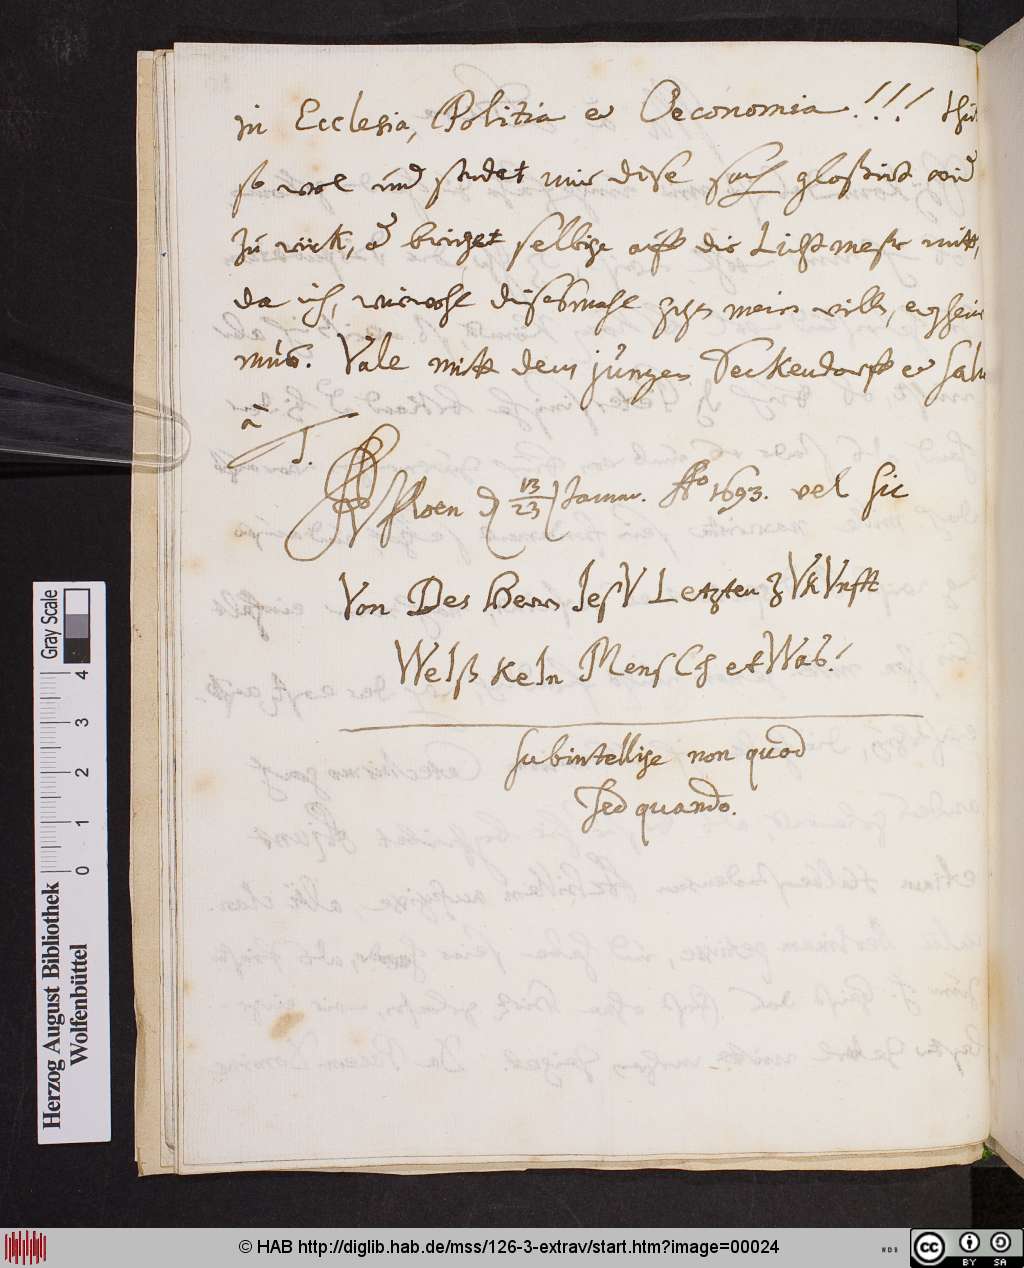 in Ecclesia, Politia et Oeconomia!!! thu
so wol und sendet mir diese sach glossirt wid
zu rück, od bringet selbige auff die Lichtmess mitt,
da ich, wiewohl dissmahl meins
muß. Vale mitt dem jungen Seckendorff et salv
à
T.
Ploen d 13/23 Januar. Ao 1693. vel sic
Von Des Herrn JesV Letzten ZVkVnfft
WeIß keIn MensCh etWas!
subintellige non quod
sed quando.
Gray Scale
0 1 2 3 4
Herzog August Bibliothek
Wolfenbüttel
© HAB http://diglib.hab.de/mss/126-3-extrav/start.htm?image=00024
CC BY SA